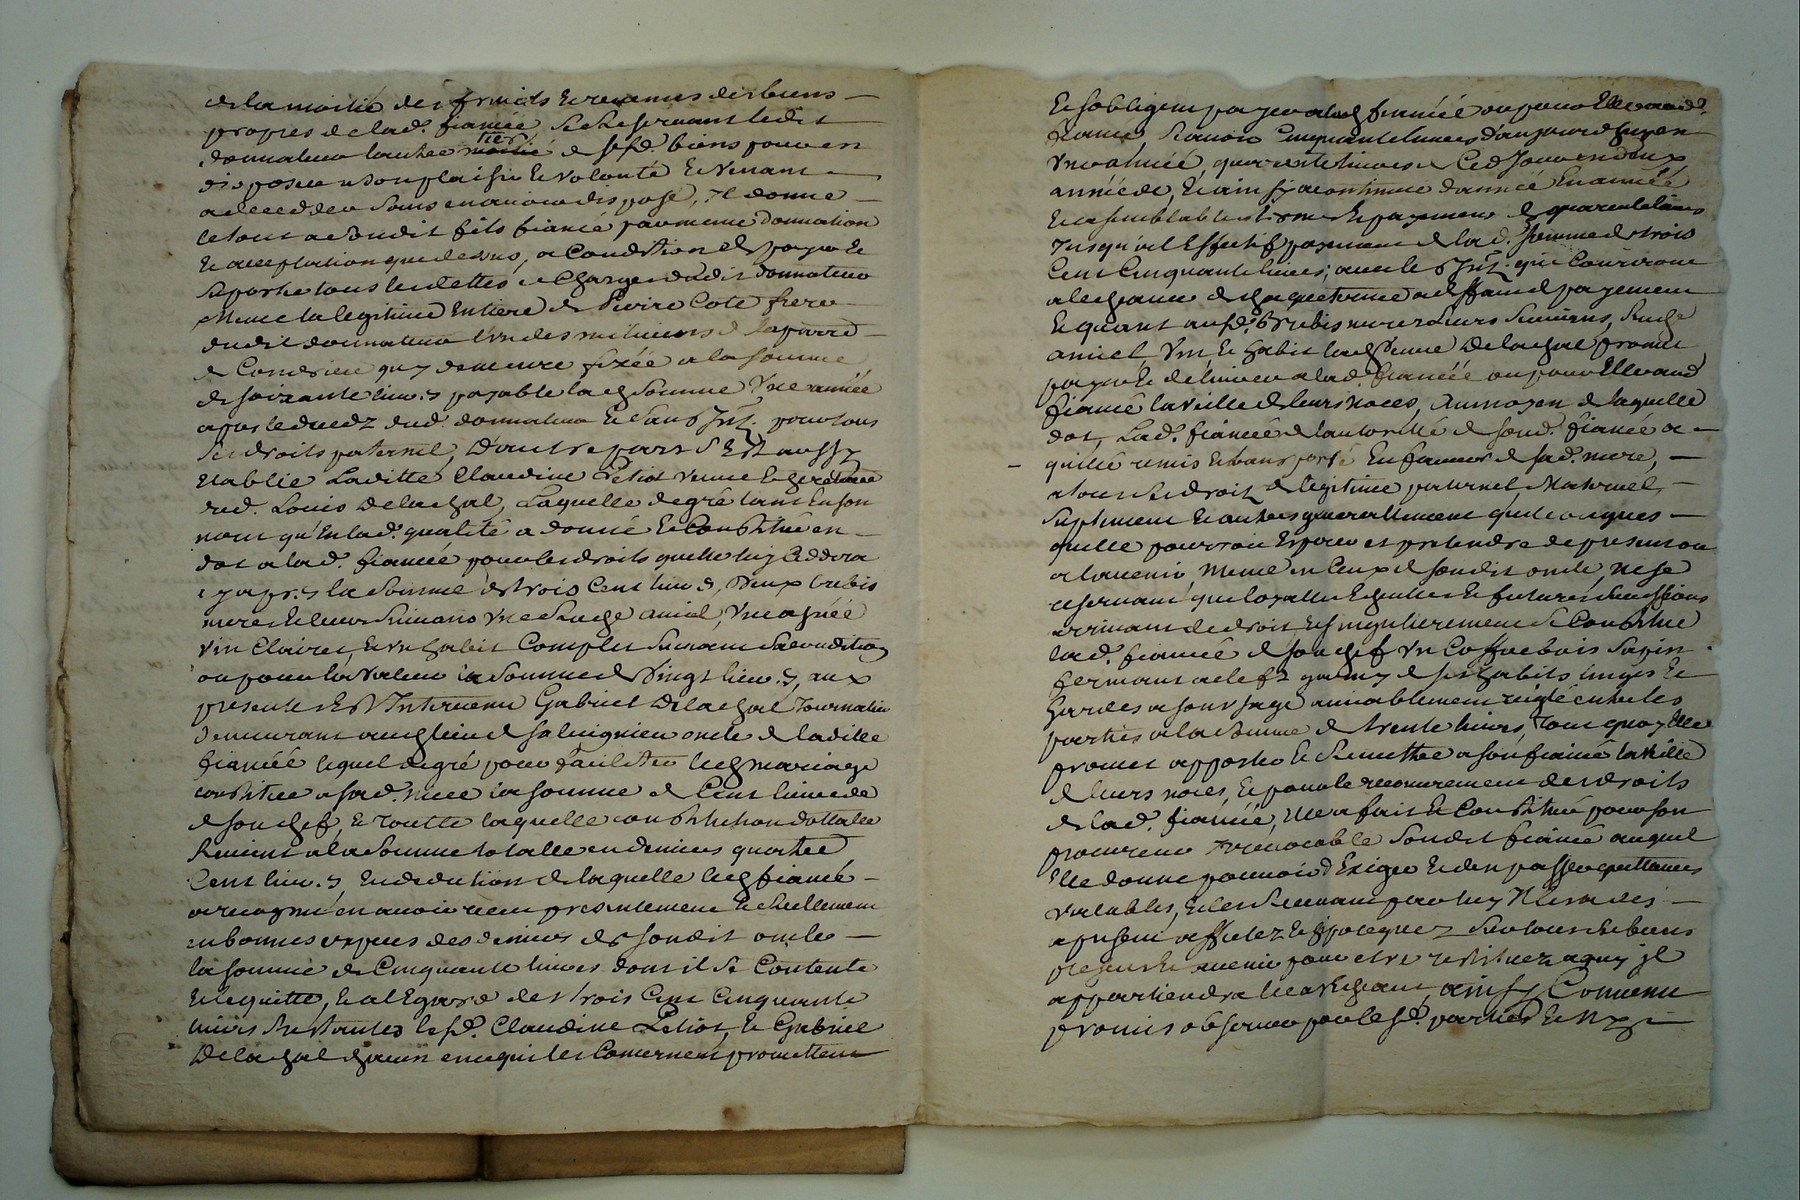 de la moitié des fruits & revenus des biens
propres de lad. fiancée, se reservant ledit
donnateur l'autre tier de sesd. biens pour en
disposer a son plaisir & volonté & venant
a decedder sans en avoir disposé, il donne
le tout a sondit fils fiancé par meme donnation
& acceptation que dessus, a condition de payer &
suporter tous les dettes & charges dudit donnateur
meme la legitime entiere de Pierre Cote frere
dudit donnateur
de Condrieu qui demeure fixée a la somme
de soixante livres payable lad. somme une année
apres le decedz dud. donnateur & sans Int. pour tous
ses droits paternel, D'autre part S'Est aussy
etablie Laditte Claudine Petiot veuve & heretiere
dud. Louis Delachal, Laquelle de gré tant en son
nom qu'en lad. qualité a donné & constitué en
dot a lad. fiancée pour les droits quelle luy ceddera
cy apres la somme de trois cent livres, deux brebis
meres & leurs suivans une vache, une asnée
vin clairet, & un habit complet suivant sa condition
ou pour la valeur la somme de vingt livres, aux
presentes Est Intervenu Gabriel Delachal Journalier
demeurant au lieu de oncle de laditte
fiancée lequel de gré pour faciliter led. mariage
constitue a sad. niece la somme de Cent livres de
de son chef, & toutte laquelle constitution dottalle
Revient a la somme totalle en deniers quattre
Cent livres, en deduction de laquelle led. fiancé
a recognu en avoir receu presentement & reellement
en bonnes especes des deniers de sondit oncle
la somme de Cinquante livres dont il se contente
& le quitte, & a l'Egard des trois Cent cinquante
livres restantes les sd. Claudine Petiot, & Gabriel
Delachal chacun en ce qui les concernent promettent
& s'obligent payer aud. fiancée ou pour Elle aud.
fiancé scavoir cinquante livres d'aujourd'huy en
une année, quarente livres a Ced. Jour en deux
année, & ainsy a continuer d'année En année
& a semblable termes & payement de quarente livres
Jusqu'a l'Effectif payement de lad. somme de trois
Cent Cinquante livres, avec les Int. qui Courront
a l'echeance de chaque terme a deffaut de payement
& quant ausd. brebis meres leurs suivans, vache
Vin & habit lad. veuve Delachal promet
payer & delivrer a lad. fiancée ou pour Elle aud.
fiancé la veille de leurs noces, Au moyen de laquelle
dot, Lad. fiancée de l'authorité de sond. fiancé a
quitté remis & transporté En faveur de sad. mere,
tous ses droits de legitime paternel, Maternel,
suplement & autres generallement quelconques
quelle pourroit Esperer et pretendre de present ou
a l'avenir, meme en Ceux de sondit oncle, ne se
reservant que loyalle Echeutes & futures successions
arrivant de droit & singulierement se constitue
lad. fiancée de son chef un Coffre bois sapin
fermant a clef garny de ses habits linges &
hardes a son usage amiablement reglé entre les
parties a la somme de trente livres, Tout quoy Elle
promet apporter & remettre a son fiancé la veille
de leurs noces, & pour le recouvrement des droits
de lad. fiancée, Elle a fait & constitué pour son
procureur irrevocable sondit fiancé auquel
Elle donne pouvoir d'Exiger & d'en passer quittances
valables, & les recevant par luy Il les a dés
a present affectez & hipotequez sur tous ses biens
presents & avenir pour etre restituez a quy il
appartiendra le cas Echeant, ainsy Convenu
promis observer par les sd. parties &